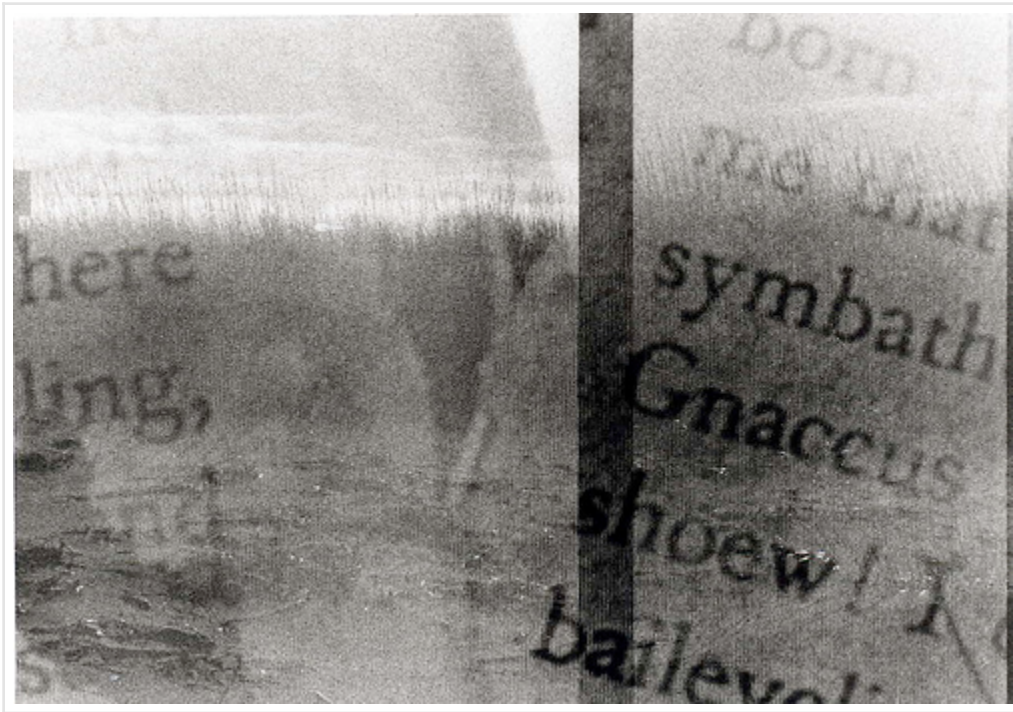 no
here
ling,
born
me that
symbath
Gnaccus
shoew! I
bailevoli